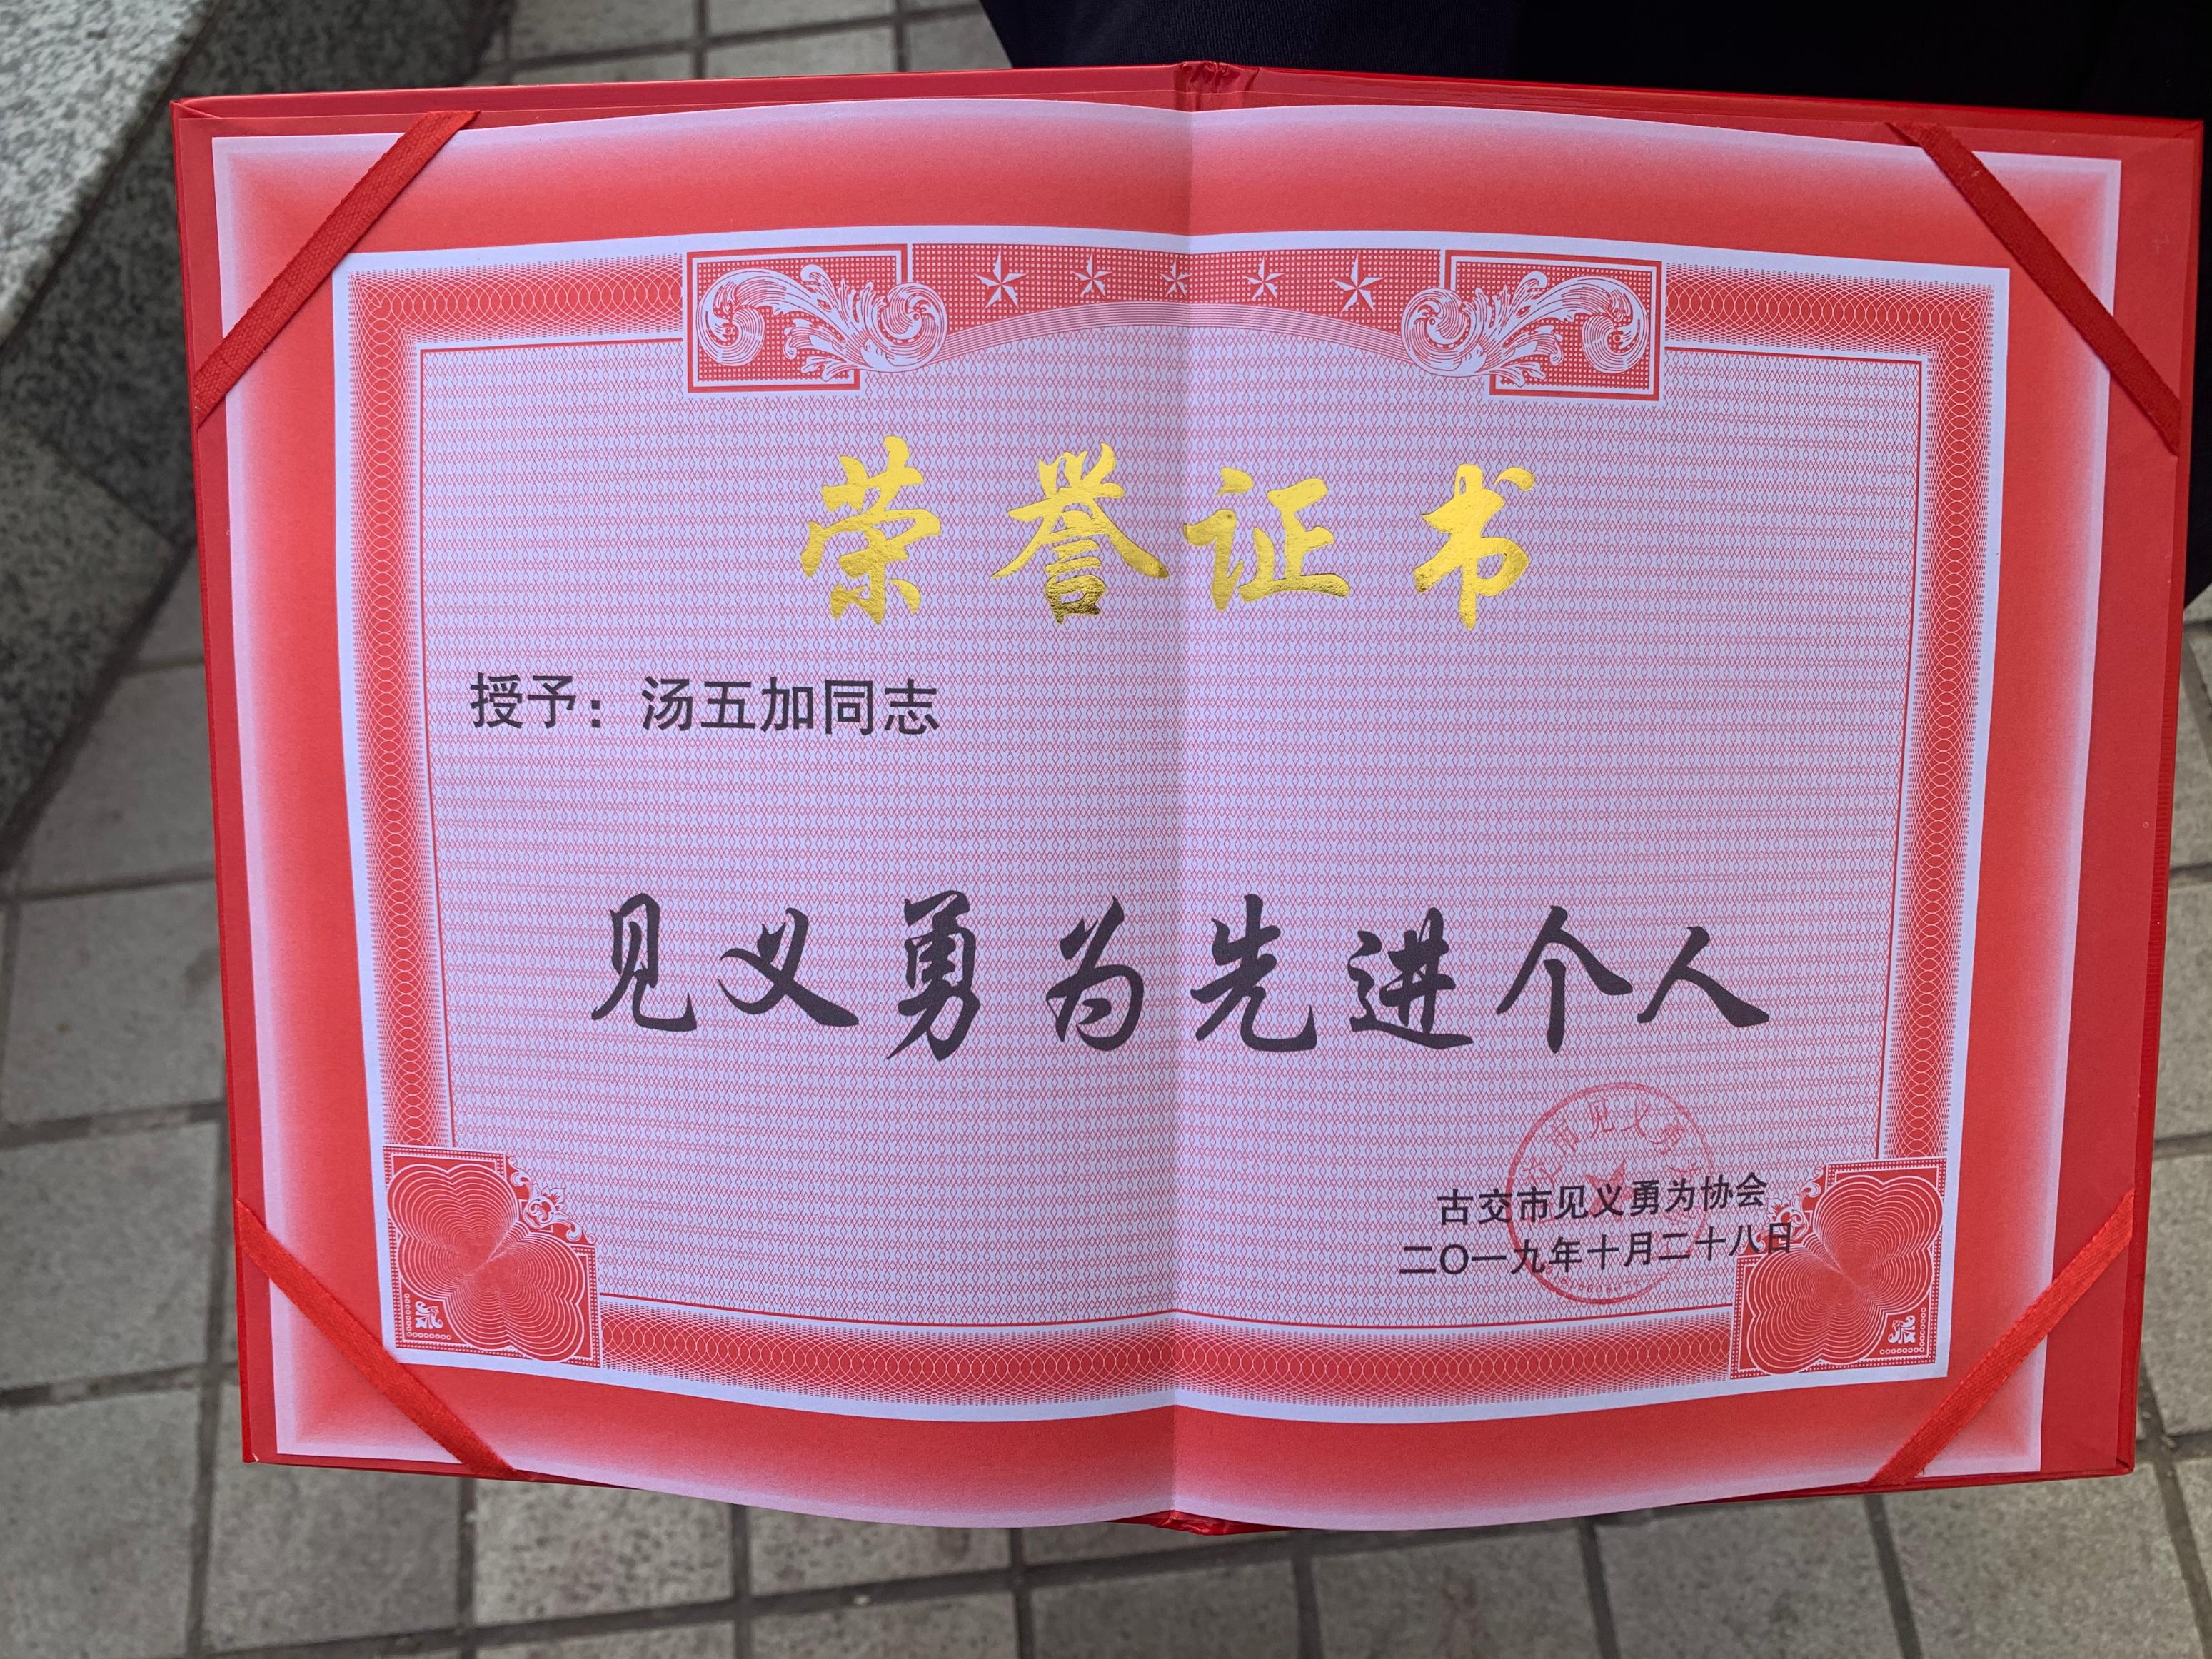 荣誉证书
授予：汤五加同志
见义勇为先进个人
市见义勇
古交市见义勇为协会
二〇一九年十月二十八日